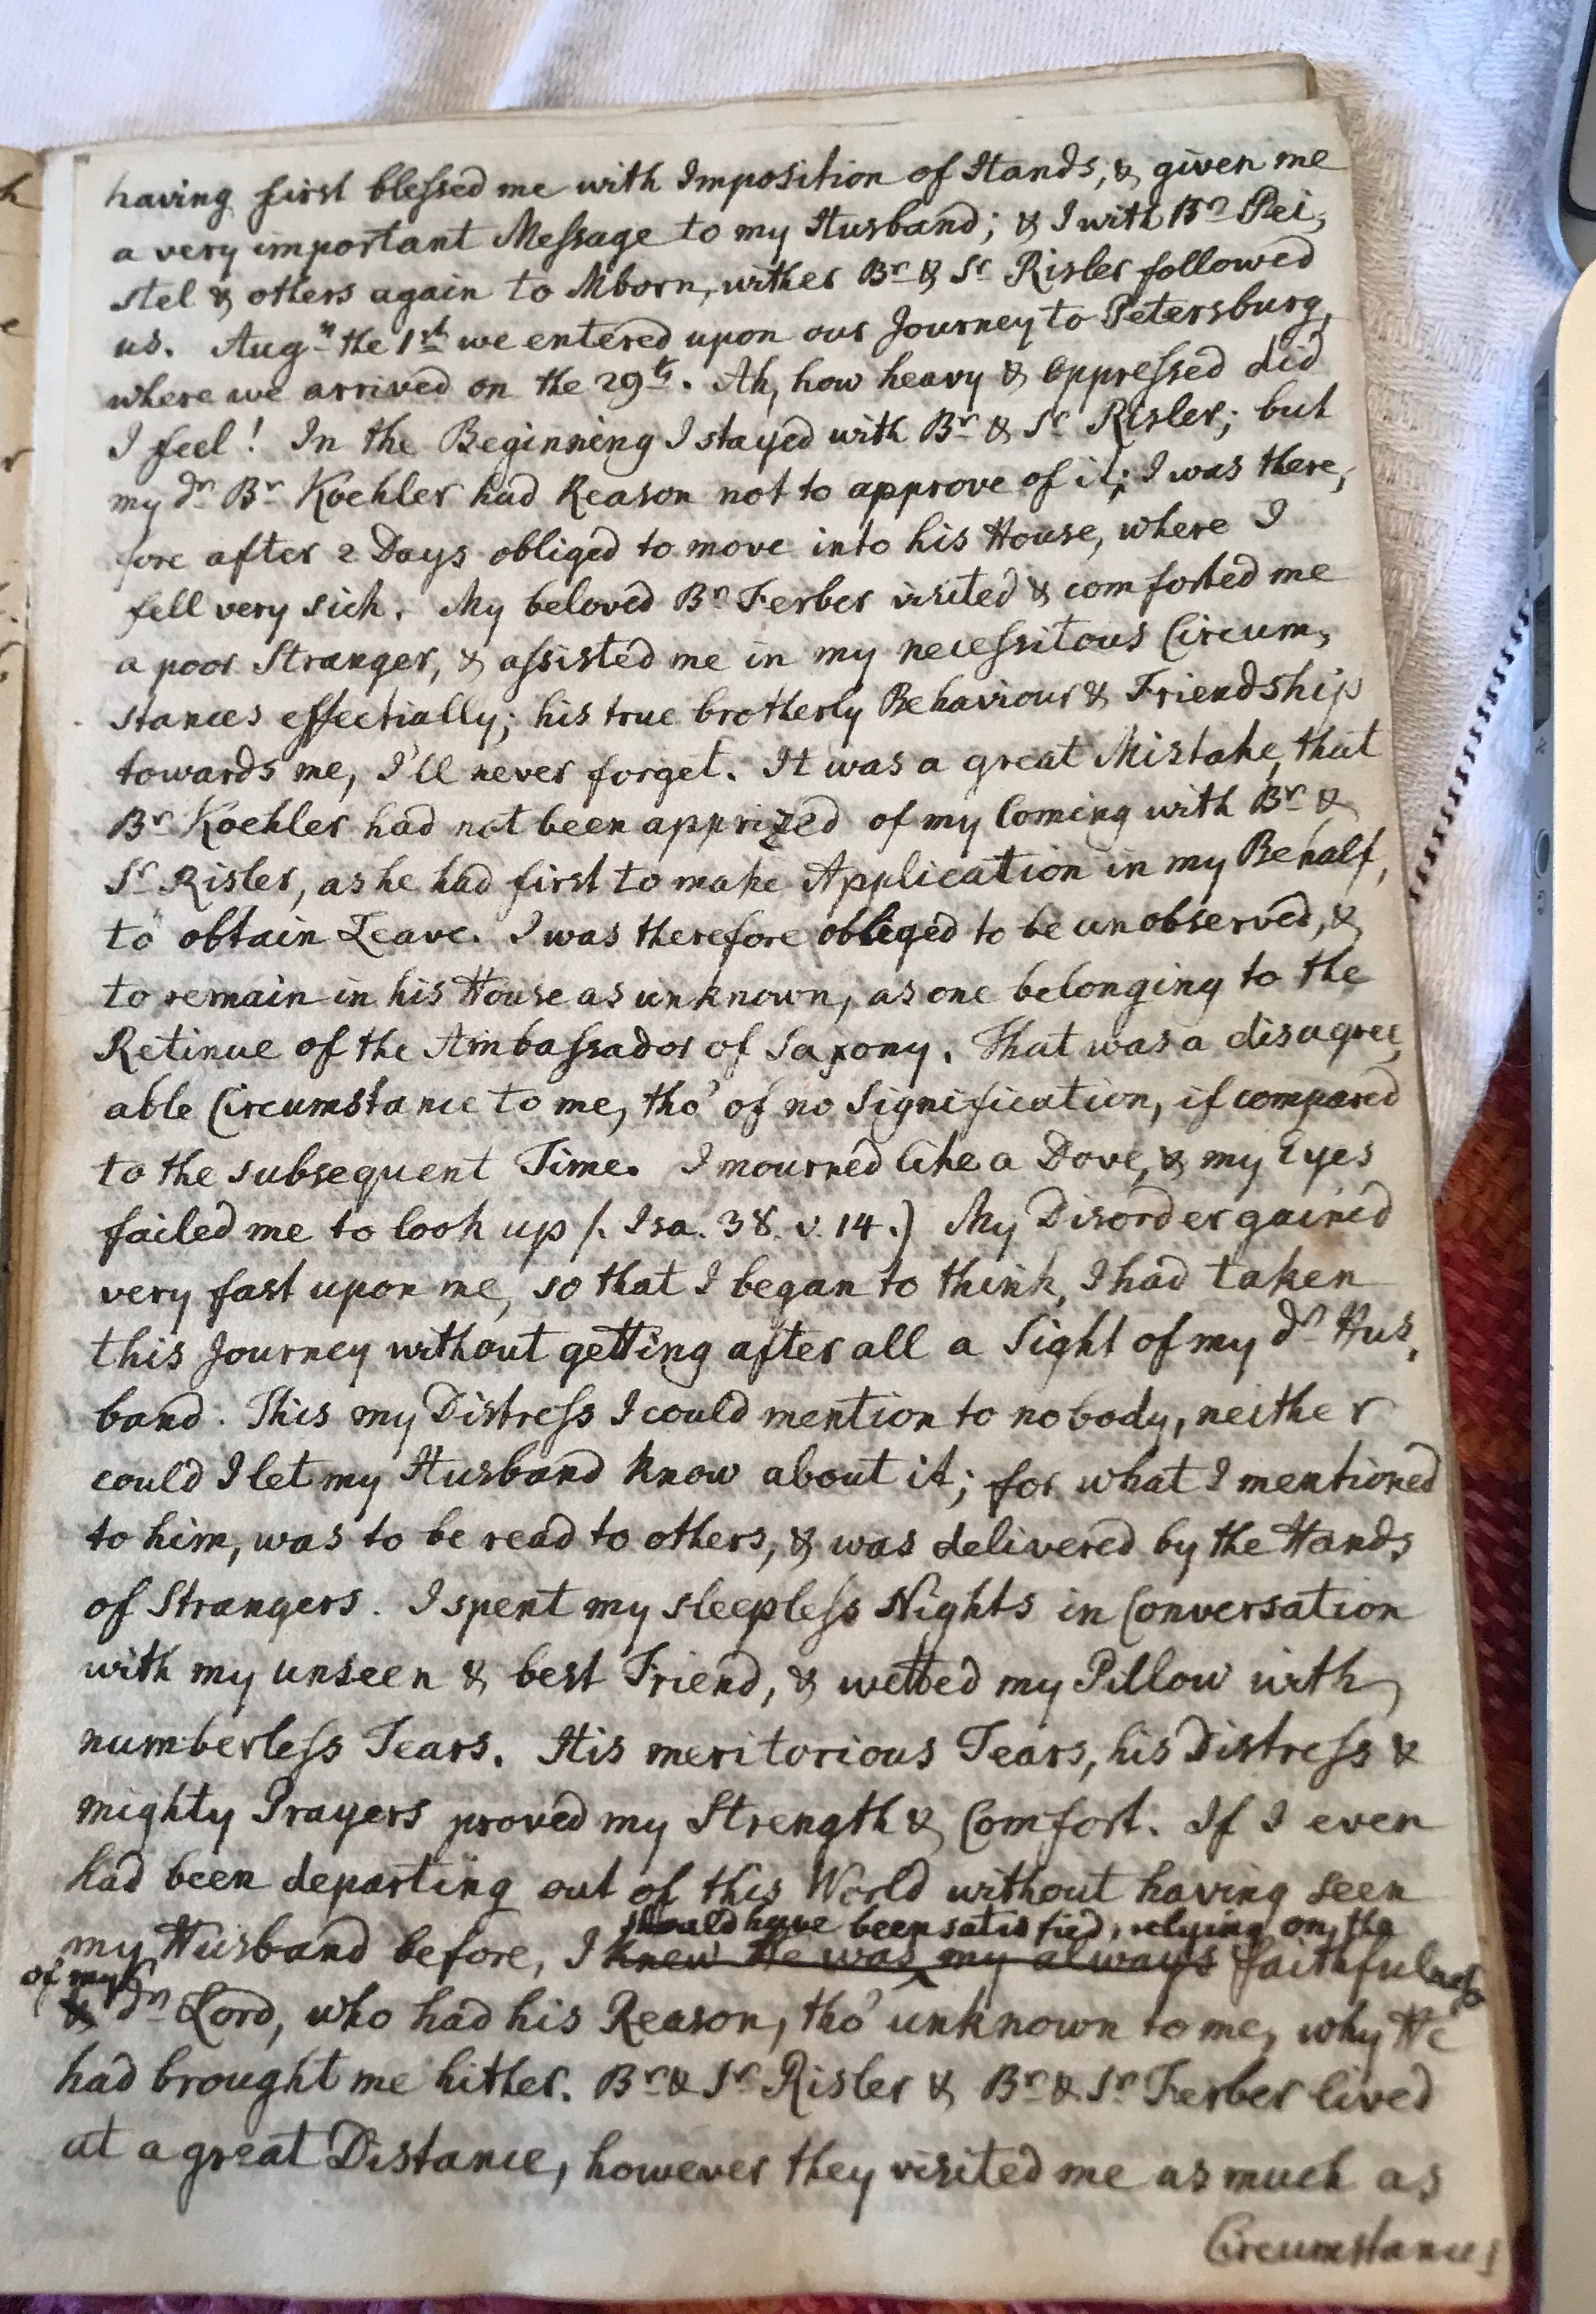 having first blessed me with Imposition of Hands, & given me
a very important Message to my Husband; & I with Br. Pei,
stel & others again to Mborn, wither Br. & Sr. Risler followed
us. Augst the 1st we entered upon our Journey to Petersburg,
where we arrived on the 29th. Ah, how heavy & oppressed did
I feel! In the Beginning I stayed with Br. & Sr. Risler; but
my dr. Br. Koehler had Reason not to approve of it; I was there,
fore after 2 Days obliged to move into his House, where I
fell very sick. My beloved Br. Ferber visited & comforted me
a poor Stranger, & assisted me in my necessitous Circum,
stances effectially; his true brotherly Behaviour & Friendship
towards me, I'll never forget. It was a great Mistake, that
Br. Koehler had not been apprized of my Coming with Br. &
Sr. Risler, as he had first to make Application in my Behalf,
to obtain Leave. I was therefore obliged to be unobserved, &
to remain in his House as unknown, as one belonging to the
Retinue of the Ambassador of Saxony. That was a disagree,
able Circumstance to me, tho' of no Signification, if compared
to the subsequent Time. I mourned like a Dove, & my Eyes
failed me to look up /. Isa. 38. v. 14.) My Disorder gained
very fast upon me, so that I began to think, I had taken
this Journey without getting after all a Sight of my dr. Hus,
band. This my Distress I could mention to nobody, neither
could I let my Husband know about it; for what I mentioned
to him, was to be read to others, & was delivered by the Hands
of Strangers. I spent my sleepless Nights in Conversation
with my unseen & best Friend, & wetted my Pillow with
numberless Tears. His meritorious Tears, his Distress &
mighty Prayers proved my Strength & Comfort. If I even
had been departing out of this World without having seen
should have been satisfied, relying on the
my Husband before, I knew He was my always faithfulness
of my
& dr. Lord, who had his Reason, tho' unknown to me, why He
had brought me hither. Br. & Sr. Risler & Br. & Sr. Ferber lived
at a great Distance, however they visited me as much as
Circumstances